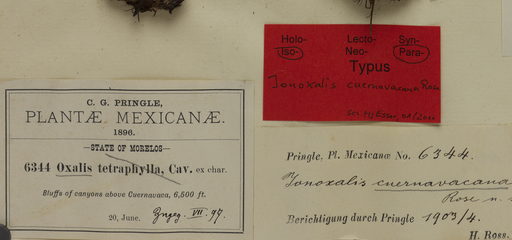 Holo- Lecto- Syn-
Iso- Neo- Para-
Typus
Ionoxalis cuernavacana Rose
C. G. PRINGLE,
PLANTÆ MEXICANÆ.
1896.
STATE OF MORELOS
6344 Oxalis tetraphylla, Cav. ex char.
Bluffs of canyons above Cuernavaca, 6,500 ft.
20, June. VII. 97.
Pringle, Pl. Mexicanæ No. 6344.
Ionoxalis cuernavacana
Rose n.
Berichtigung durch Pringle 1903/4.
H. Ross.